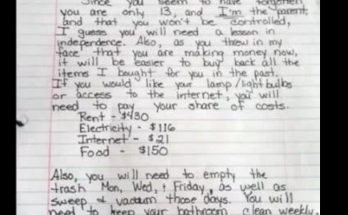 Since you seem to have forgotten
you are only 13, and I'm the parent,
and that you won't be controlled,
I guess you will need a lesson in
independence. Also, as you threw in my
face that you are making money now,
it will be easier to buy back all the
items I bought for you in the past.
If you would like your lamp/lightbulbs
or access to the internet, you will
need to pay your share of costs.
Rent - $430
Electricity - $116
Internet - $21
Food - $150
Also, you will need to empty the
trash Mon, Wed, + Friday, as well as
sweep + vacuum those days. You will
need to keep your bathroom clean weekly,